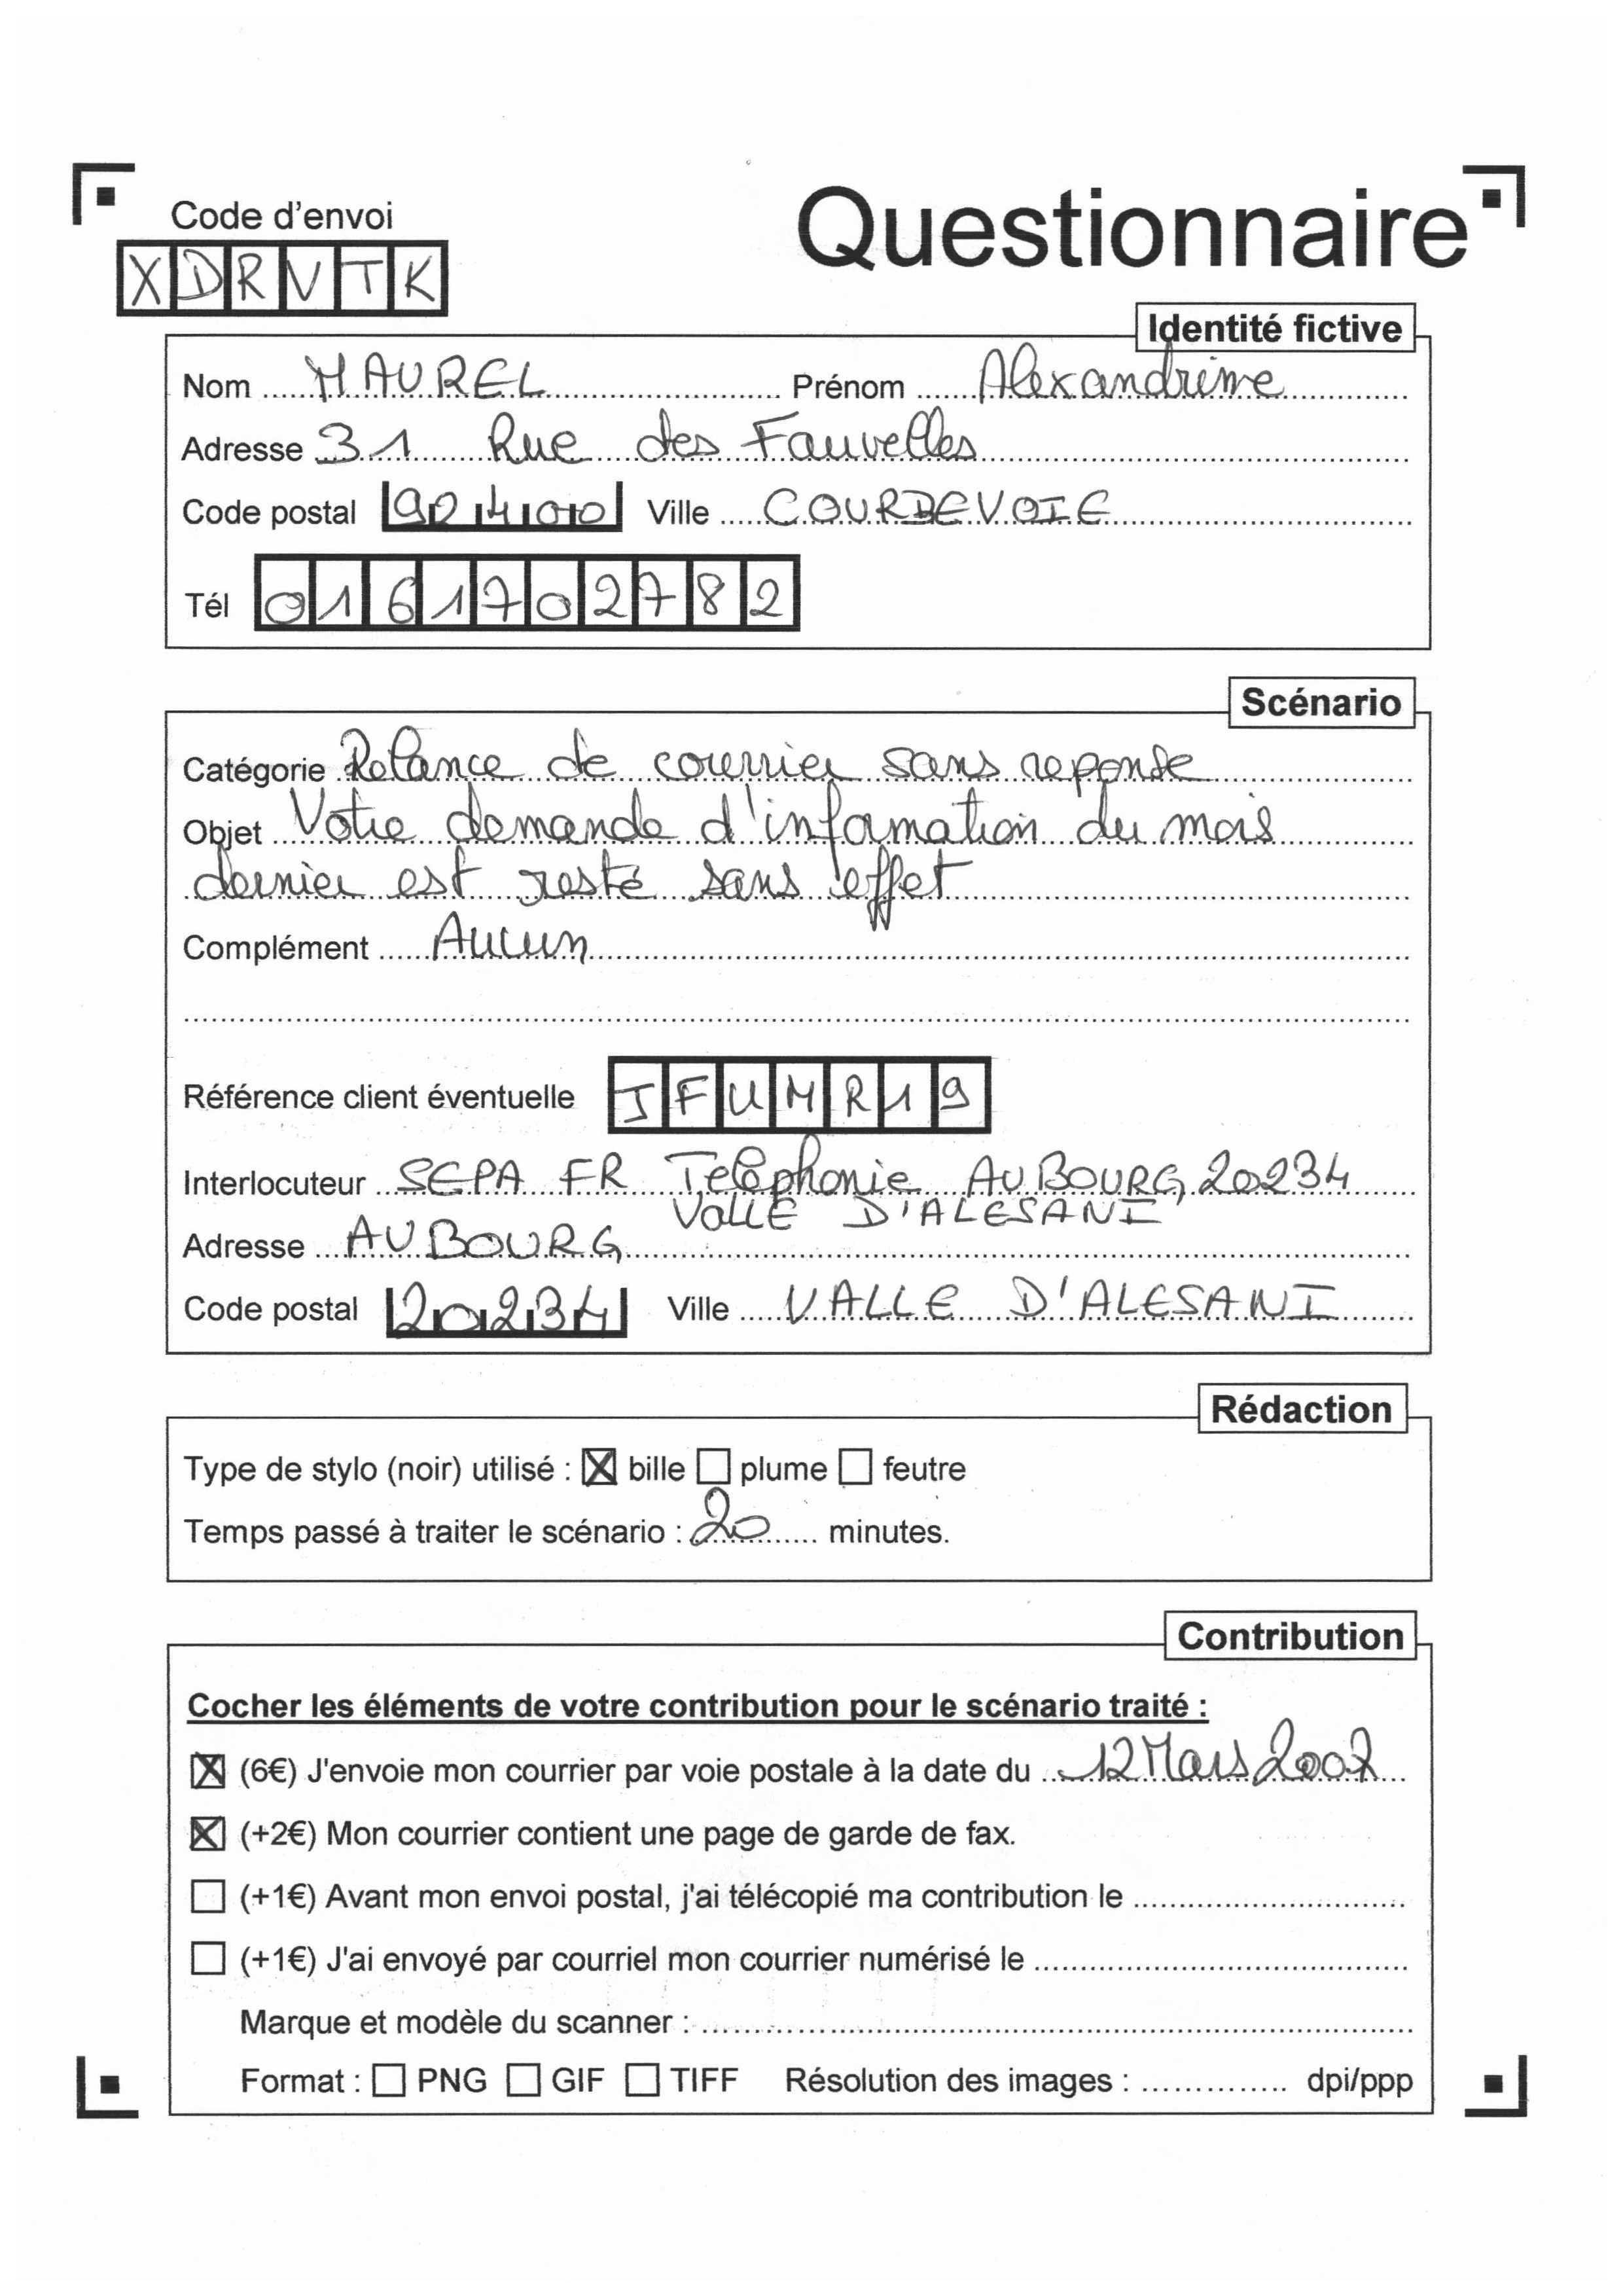 Code d'envoi
Questionnaire
XDRVTK
Identité fictive
Nom MAUREL Prénom Alexandrine
Adresse 31 Rue des Fauvelles
Code postal 92400 Ville COURBEVOIE
Tél 0161702782
Scénario
Catégorie Relance de courrier sans reponse
Objet Votre demande d'information du mois
dernier est resté sans effet
Complément Aucun
Référence client éventuelle JFUMR19
Interlocuteur SEPA FR Telephonie AU BOURG 20234
VallE D'ALESANI
Adresse AU BOURG
Code postal 20234 Ville VALLE D'ALESANI
Rédaction
Type de stylo (noir) utilisé : ☒ bille ☐ plume ☐ feutre
Temps passé à traiter le scénario : 20 minutes.
Contribution
Cocher les éléments de votre contribution pour le scénario traité :
☒ (6€) J'envoie mon courrier par voie postale à la date du 12 Mars 2007
☒ (+2€) Mon courrier contient une page de garde de fax.
☐ (+1€) Avant mon envoi postal, j'ai télécopié ma contribution le
☐ (+1€) J'ai envoyé par courriel mon courrier numérisé le
Marque et modèle du scanner :
Format : ☐ PNG ☐ GIF ☐ TIFF Résolution des images : dpi/ppp